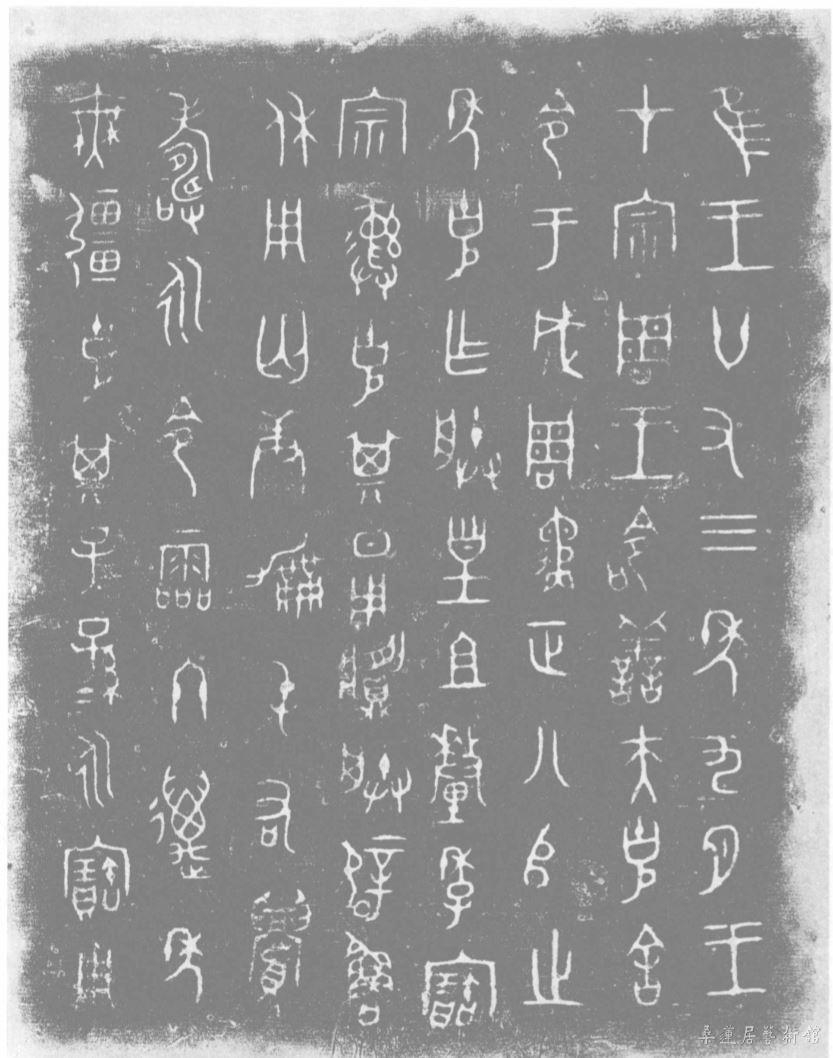 隹王廿又三年九月王
才宗周王命善夫克舍
令于成周遹正八𠂤之
年克乍朕皇且釐季寶
宗彝克其日用䵼朕辟魯
休用匄康勴屯右眉
壽永令霝冬萬年
無疆克其子=孫=永寶用
桑蓮居藝術館